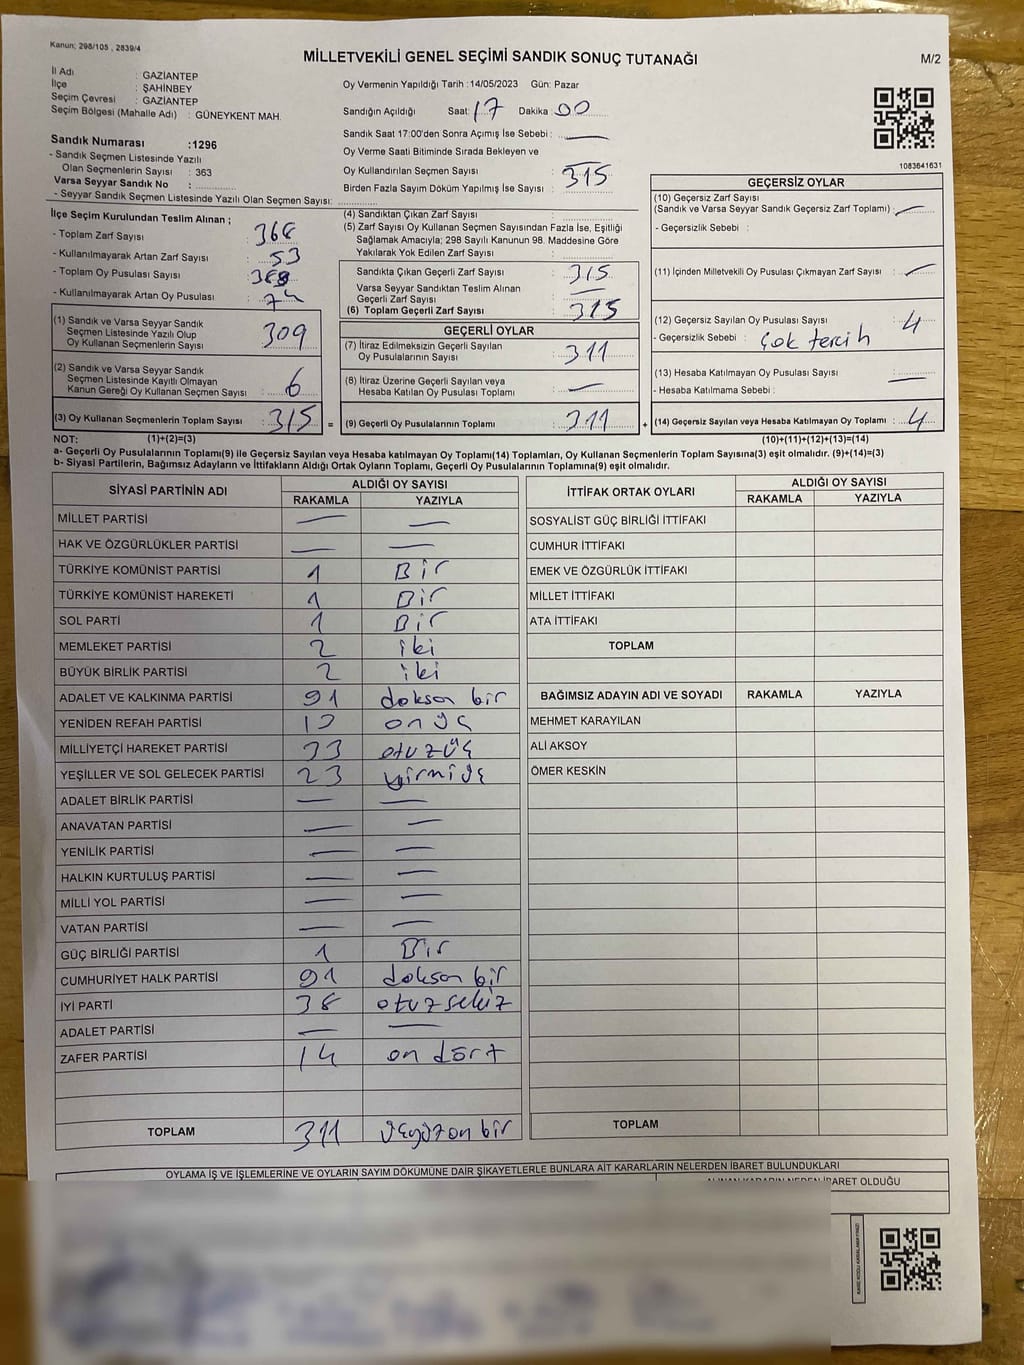 Kanun; 298/105 , 2839/4
MİLLETVEKİLİ GENEL SEÇİMİ SANDIK SONUÇ TUTANAĞI
M/2
İl Adı : GAZİANTEP
İlçe : ŞAHİNBEY
Seçim Çevresi : GAZİANTEP
Seçim Bölgesi (Mahalle Adı) : GÜNEYKENT MAH.
Oy Vermenin Yapıldığı Tarih :14/05/2023 Gün: Pazar
Sandığın Açıldığı Saat: 17 Dakika: 00
Sandık Saat 17:00'den Sonra Açımış İse Sebebi : —
Oy Verme Saati Bitiminde Sırada Bekleyen ve
Oy Kullandırılan Seçmen Sayısı : —
Birden Fazla Sayım Döküm Yapılmış İse Sayısı : 315
1083641631
Sandık Numarası :1296
- Sandık Seçmen Listesinde Yazılı
Olan Seçmenlerin Sayısı : 363
Varsa Seyyar Sandık No :
- Seyyar Sandık Seçmen Listesinde Yazılı Olan Seçmen Sayısı:
İlçe Seçim Kurulundan Teslim Alınan ;
- Toplam Zarf Sayısı : 368
- Kullanılmayarak Artan Zarf Sayısı : 53
- Toplam Oy Pusulası Sayısı : 388
- Kullanılmayarak Artan Oy Pusulası :
(1) Sandık ve Varsa Seyyar Sandık
Seçmen Listesinde Yazılı Olup
Oy Kullanan Seçmenlerin Sayısı : 309
(2) Sandık ve Varsa Seyyar Sandık
Seçmen Listesinde Kayıtlı Olmayan
Kanun Gereği Oy Kullanan Seçmen Sayısı : 6
(3) Oy Kullanan Seçmenlerin Toplam Sayısı : 315 =
(4) Sandıktan Çıkan Zarf Sayısı :
(5) Zarf Sayısı Oy Kullanan Seçmen Sayısından Fazla İse, Eşitliği
Sağlamak Amacıyla; 298 Sayılı Kanunun 98. Maddesine Göre
Yakılarak Yok Edilen Zarf Sayısı :
Sandıkta Çıkan Geçerli Zarf Sayısı : 315
Varsa Seyyar Sandıktan Teslim Alınan
Geçerli Zarf Sayısı : —
(6) Toplam Geçerli Zarf Sayısı : 315
GEÇERLİ OYLAR
(7) İtiraz Edilmeksizin Geçerli Sayılan
Oy Pusulalarının Sayısı : 311
(8) İtiraz Üzerine Geçerli Sayılan veya
Hesaba Katılan Oy Pusulası Toplamı : —
(9) Geçerli Oy Pusulalarının Toplamı : 311 +
GEÇERSİZ OYLAR
(10) Geçersiz Zarf Sayısı
(Sandık ve Varsa Seyyar Sandık Geçersiz Zarf Toplamı) : —
- Geçersizlik Sebebi :
(11) İçinden Milletvekili Oy Pusulası Çıkmayan Zarf Sayısı : —
(12) Geçersiz Sayılan Oy Pusulası Sayısı : 4
- Geçersizlik Sebebi : Çok tercih
(13) Hesaba Katılmayan Oy Pusulası Sayısı : —
- Hesaba Katılmama Sebebi :
(14) Geçersiz Sayılan veya Hesaba Katılmayan Oy Toplamı : 4
NOT: (1)+(2)=(3) (10)+(11)+(12)+(13)=(14)
a- Geçerli Oy Pusulalarının Toplamı(9) ile Geçersiz Sayılan veya Hesaba katılmayan Oy Toplamı(14) Toplamları, Oy Kullanan Seçmenlerin Toplam Sayısına(3) eşit olmalıdır. (9)+(14)=(3)
b- Siyasi Partilerin, Bağımsız Adayların ve İttifakların Aldığı Ortak Oyların Toplamı, Geçerli Oy Pusulalarının Toplamına(9) eşit olmalıdır.
SİYASİ PARTİNİN ADI ALDIĞI OY SAYISI
RAKAMLA YAZIYLA
MİLLET PARTİSİ — —
HAK VE ÖZGÜRLÜKLER PARTİSİ — —
TÜRKİYE KOMÜNİST PARTİSİ 1 Bir
TÜRKİYE KOMÜNİST HAREKETİ 1 Bir
SOL PARTİ 1 Bir
MEMLEKET PARTİSİ 2 iki
BÜYÜK BİRLİK PARTİSİ 2 iki
ADALET VE KALKINMA PARTİSİ 91 doksan bir
YENİDEN REFAH PARTİSİ 13 on üç
MİLLİYETÇİ HAREKET PARTİSİ 33 otuzüç
YEŞİLLER VE SOL GELECEK PARTİSİ 23 yirmiüç
ADALET BİRLİK PARTİSİ — —
ANAVATAN PARTİSİ — —
YENİLİK PARTİSİ — —
HALKIN KURTULUŞ PARTİSİ — —
MİLLİ YOL PARTİSİ — —
VATAN PARTİSİ — —
GÜÇ BİRLİĞİ PARTİSİ 1 Bir
CUMHURİYET HALK PARTİSİ 91 doksan bir
İYİ PARTİ 38 otuzsekiz
ADALET PARTİSİ — —
ZAFER PARTİSİ 14 on dört
TOPLAM 311 üçyüzon bir
İTTİFAK ORTAK OYLARI ALDIĞI OY SAYISI
RAKAMLA YAZIYLA
SOSYALİST GÜÇ BİRLİĞİ İTTİFAKI
CUMHUR İTTİFAKI
EMEK VE ÖZGÜRLÜK İTTİFAKI
MİLLET İTTİFAKI
ATA İTTİFAKI
TOPLAM
BAĞIMSIZ ADAYIN ADI VE SOYADI RAKAMLA YAZIYLA
MEHMET KARAYILAN
ALİ AKSOY
ÖMER KESKİN
TOPLAM
OYLAMA İŞ VE İŞLEMLERİNE VE OYLARIN SAYIM DÖKÜMÜNE DAİR ŞİKAYETLERLE BUNLARA AİT KARARLARIN NELERDEN İBARET BULUNDUKLARI
ALINAN KARARIN NEDEN İBARET OLDUĞU